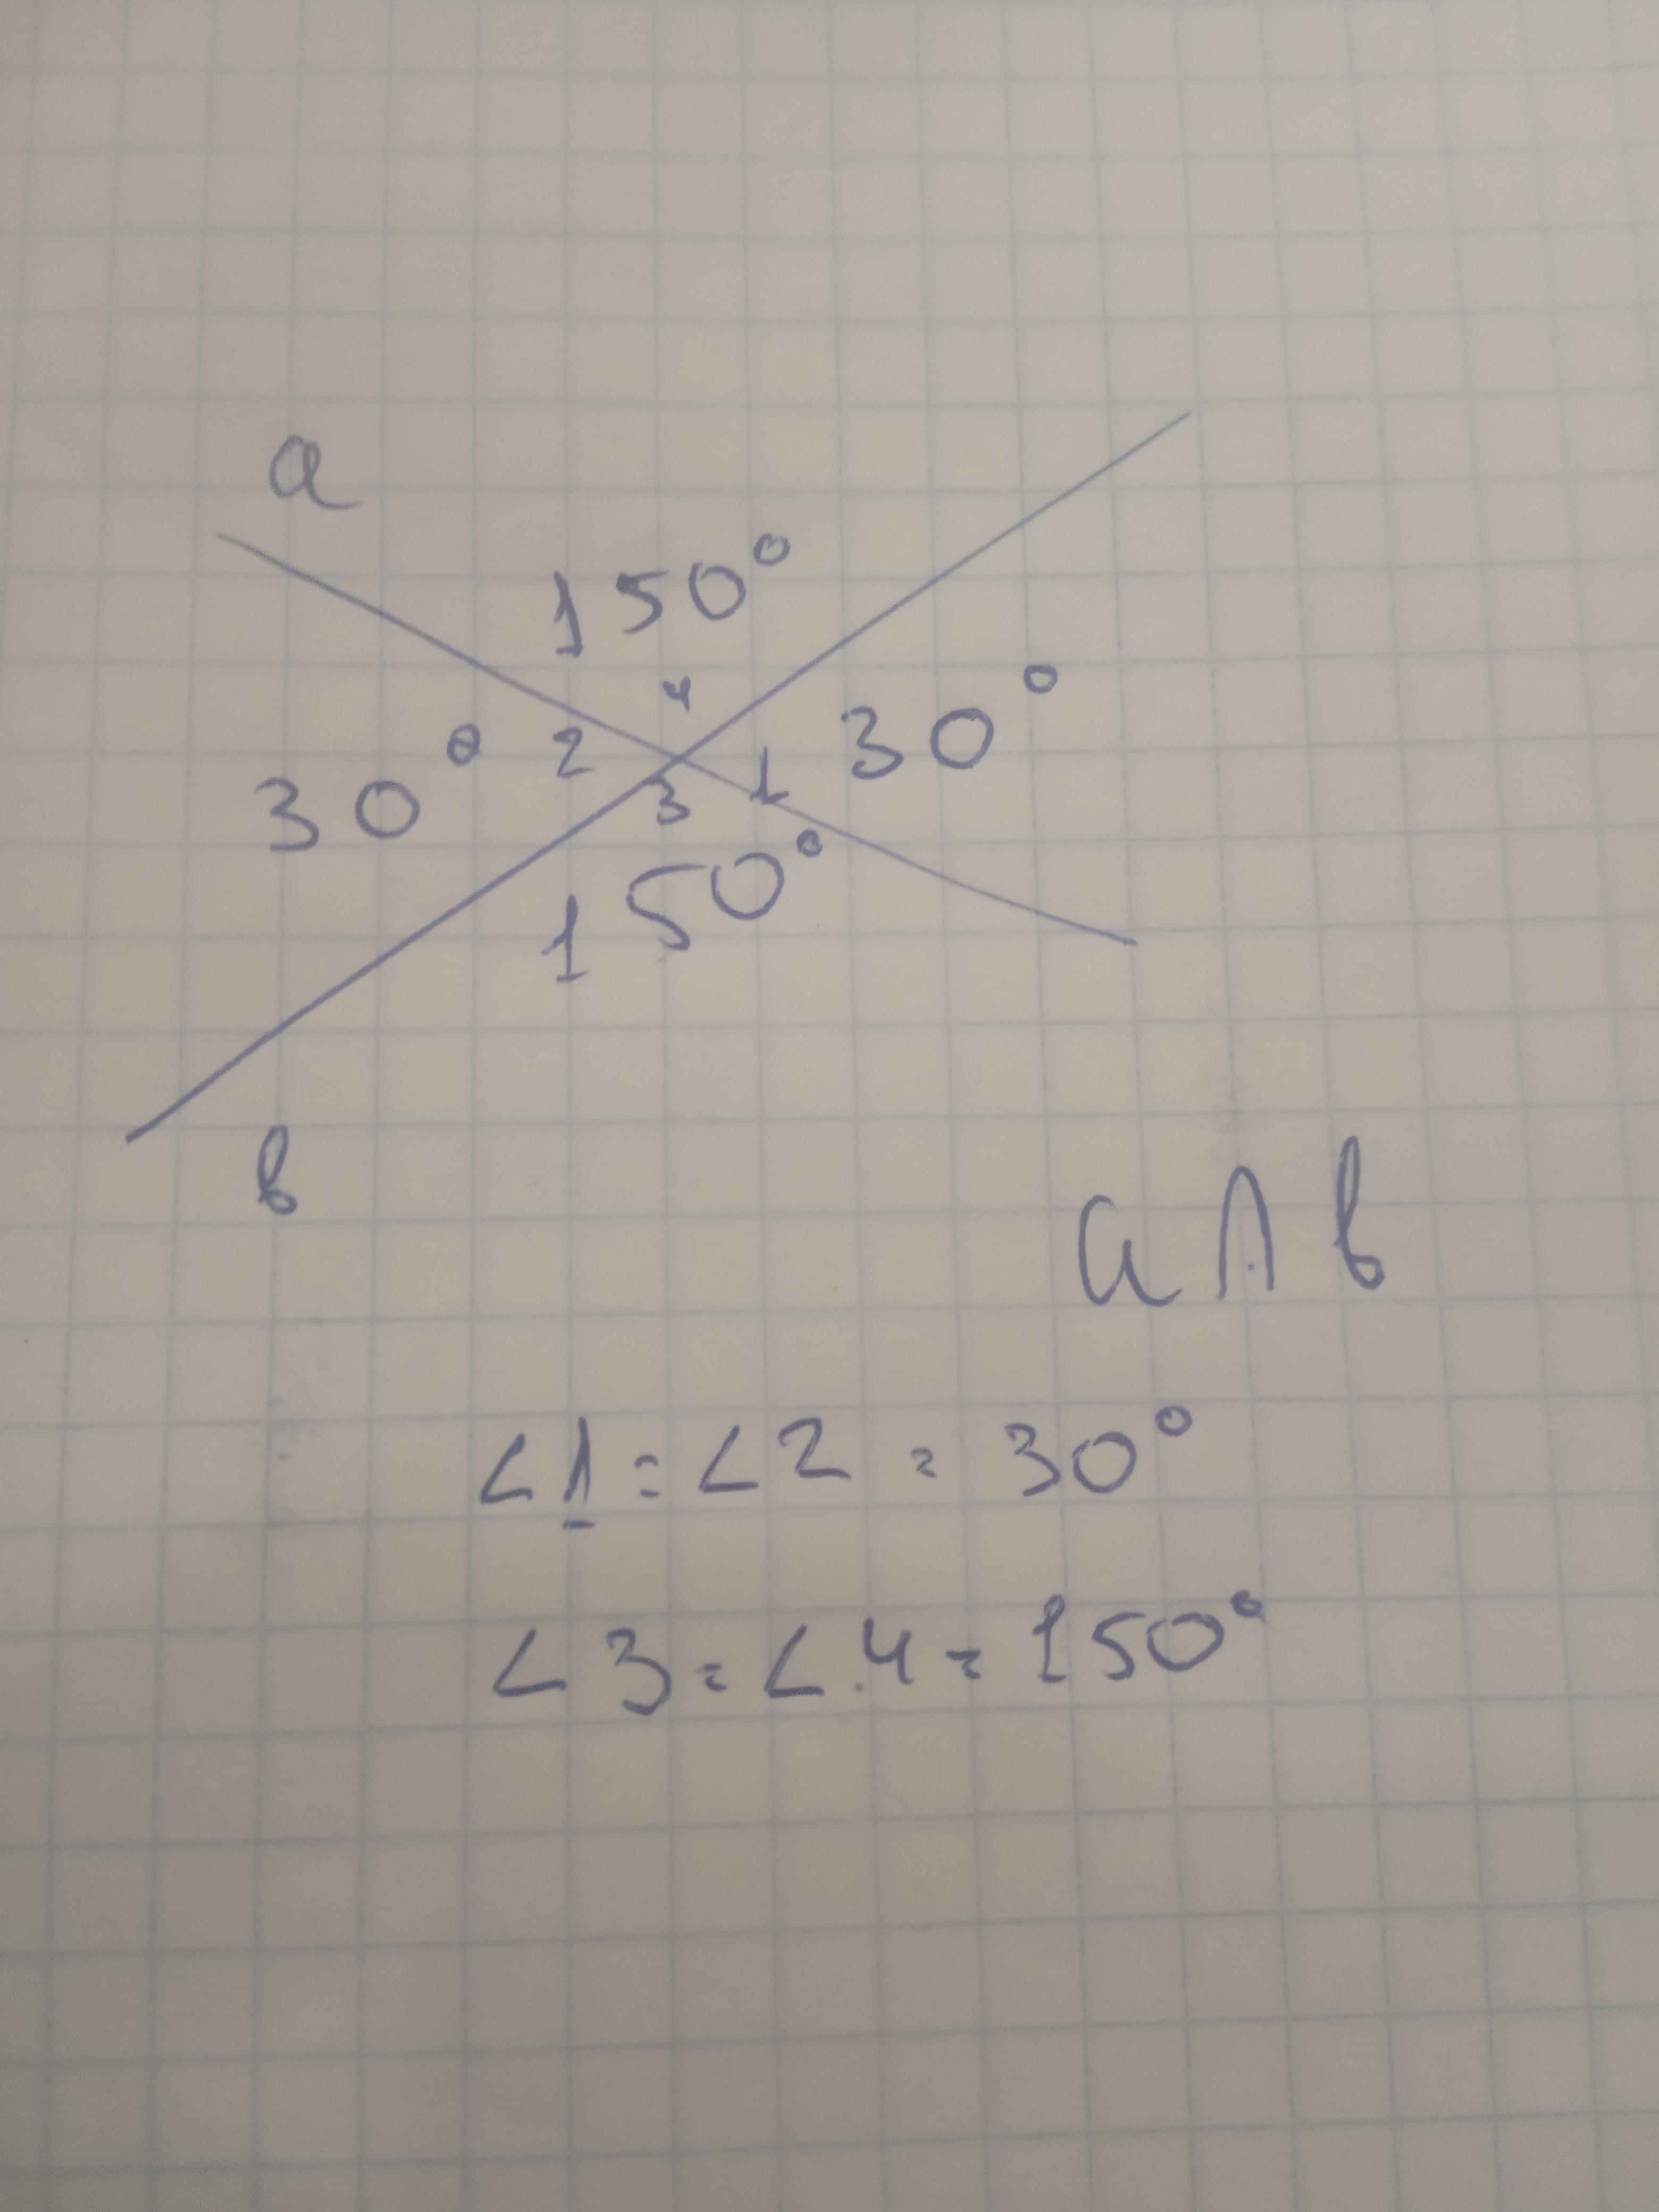 a
150°
4
30° 2 1 30°
3
150°
в
a ∩ в
∠1 = ∠2 = 30°
∠3 = ∠4 = 150°